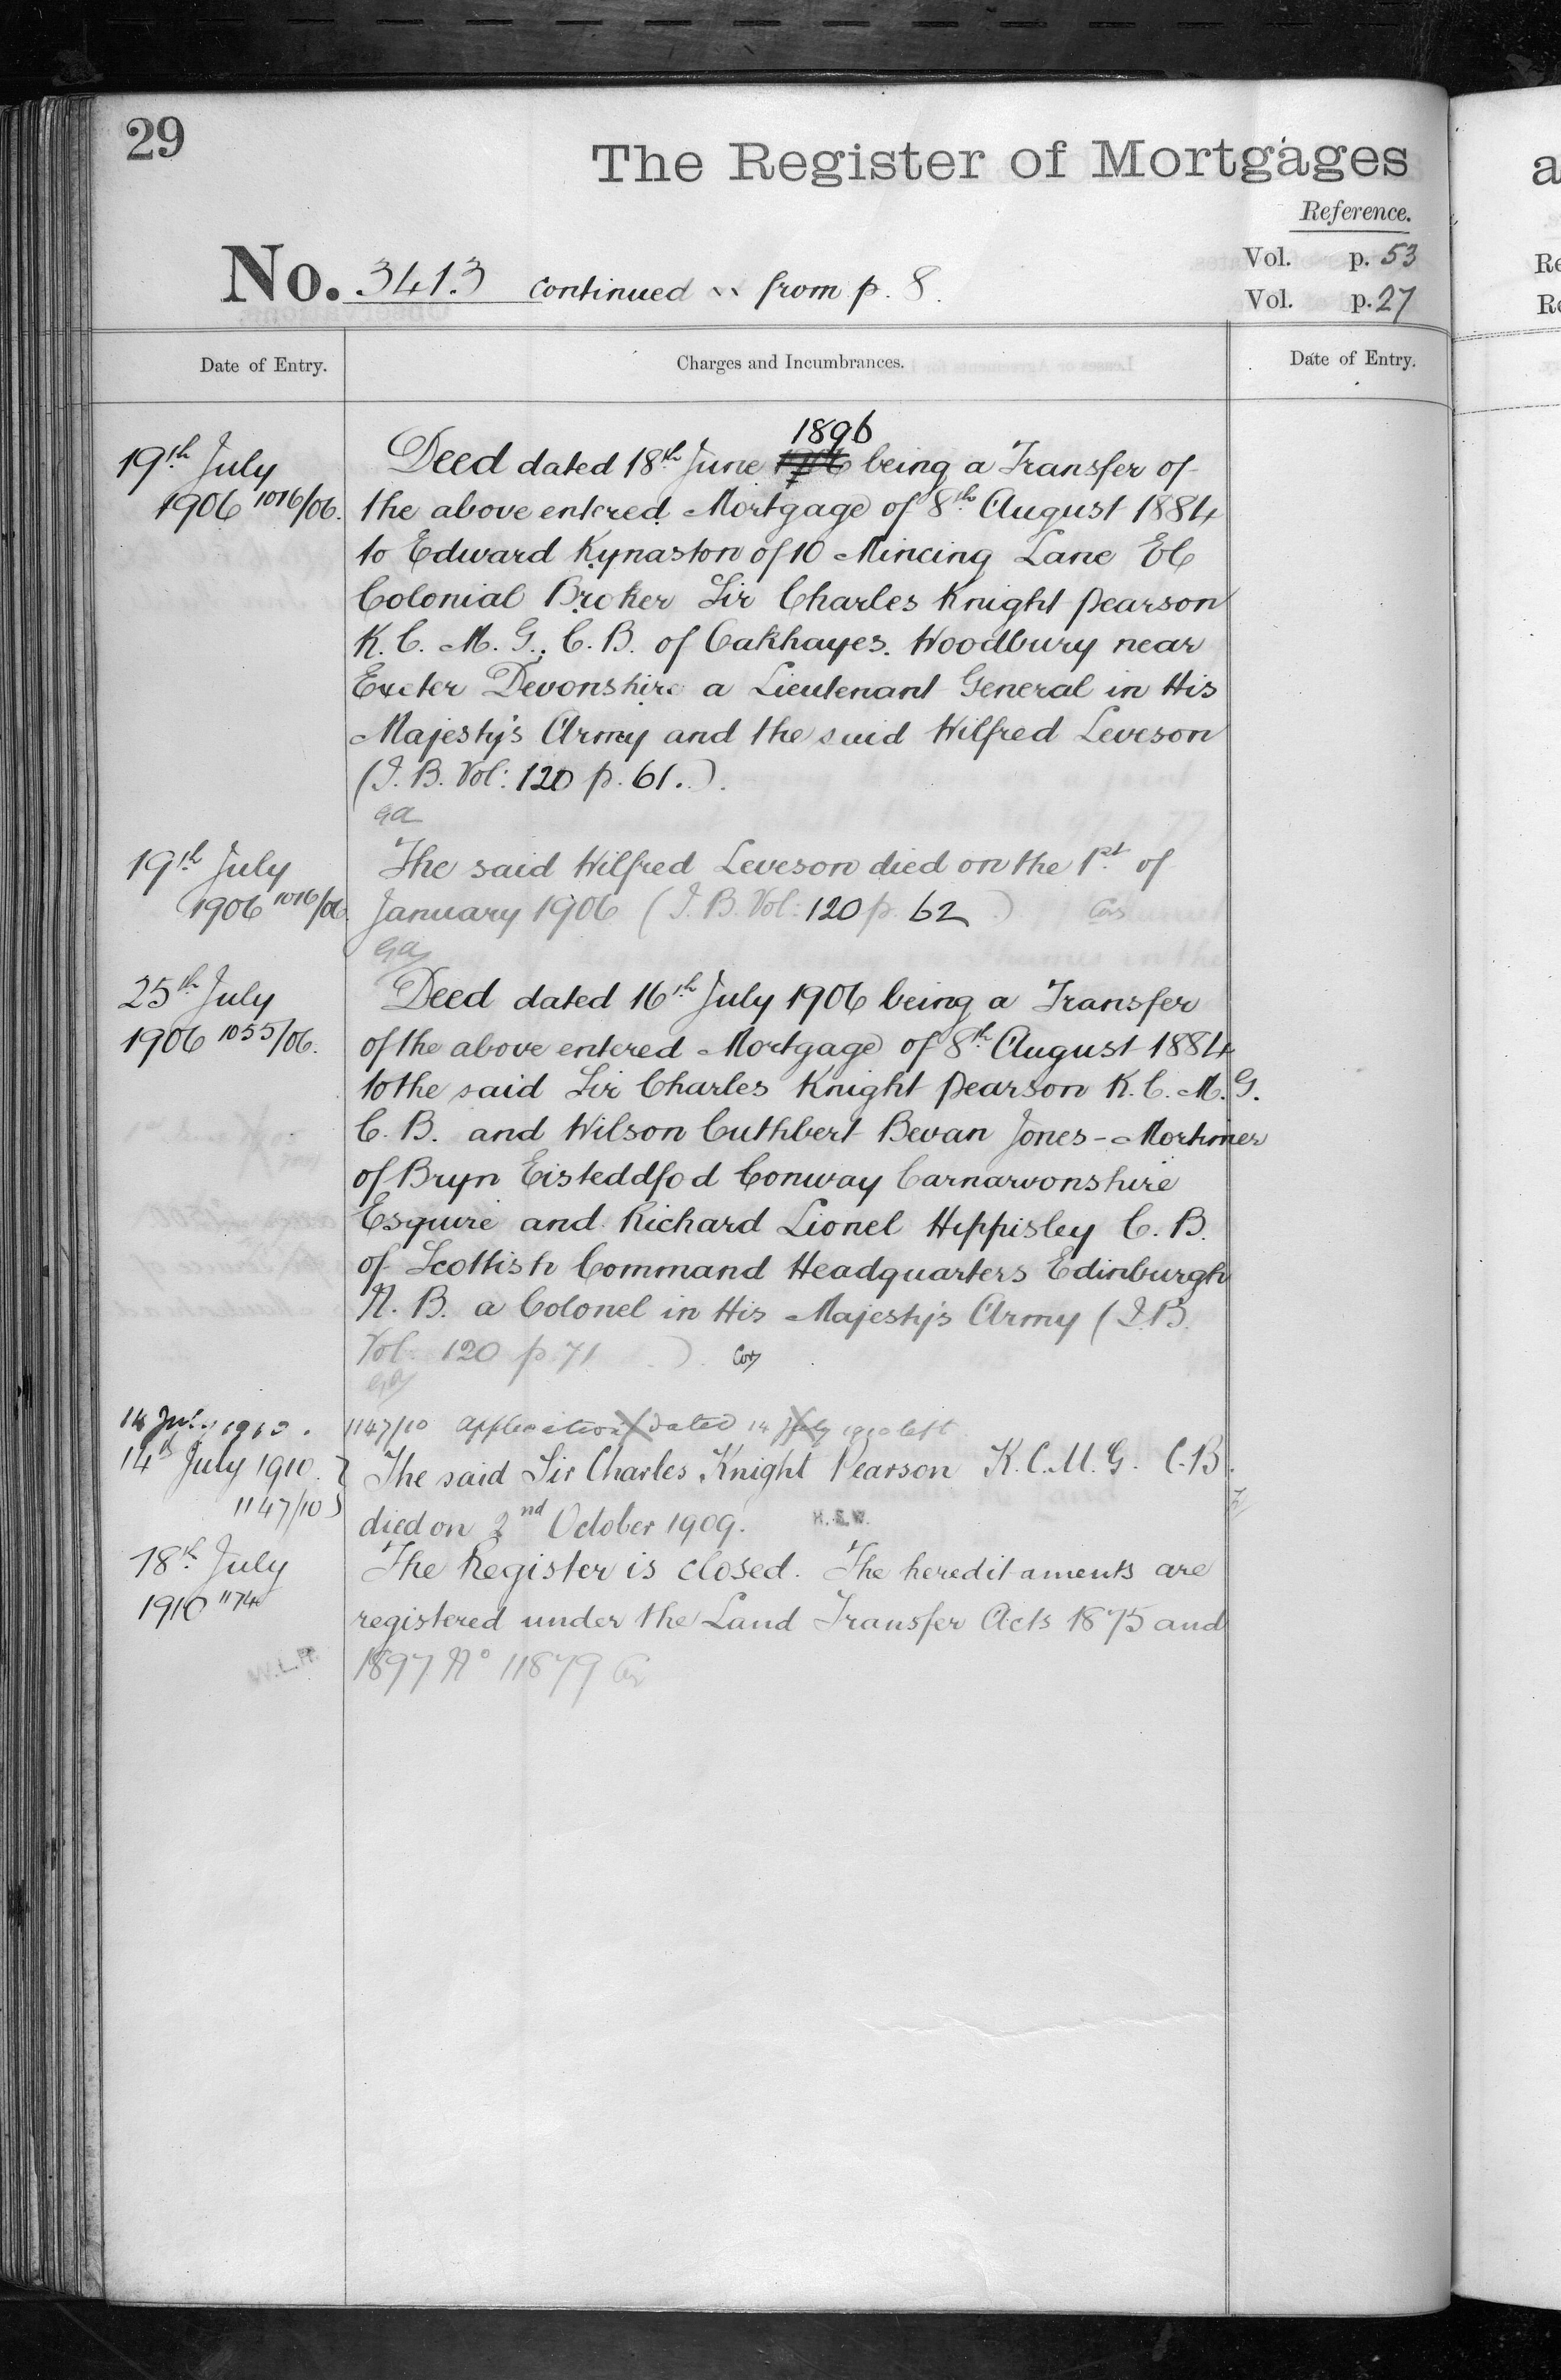 29
The Register of Mortgages
Reference.
Vol. p. 53
No. 3413 continued from p. 8.
Vol. p. 27
Date of Entry.
Charges and Incumbrances.
Date of Entry.
1896
19th July
Deed dated 18th June being a Transfer of
1906 1016/06.
the above entered Mortgage of 8th August 1884
to Edward Kynaston of 10 Mincing Lane EC
Colonial Broker Sir Charles Knight Pearson
K. C. M. G., C. B. of Oakhayes. Woodbury near
Exeter Devonshire a Lieutenant General in His
Majesty's Army and the said Wilfred Leveson
(I. B. Vol: 120 p. 61.).
GA
19th July
The said Wilfred Leveson died on the 1st of
1906 1016/06.
January 1906 (I. B. Vol: 120 p. 62 )
25th July
Deed dated 16th July 1906 being a Transfer
1906 1055/06.
of the above entered Mortgage of 8th August 1884
to the said Sir Charles Knight Pearson K. C. M. G.
C. B. and Wilson Cuthbert Bevan Jones-Mortimer
of Bryn Eisteddfod Conway Carnarvonshire
Esquire and Richard Lionel Hippisley C. B.
of Scottish Command Headquarters Edinburgh
N. B. a Colonel in His Majesty's Army (I. B.
Vol. 120 p 71 ).
14 July 1910.
1147/10 Application dated 14 July 1910 left
14th July 1910.
The said Sir Charles Knight Pearson K. C. M. G. C. B.
1147/10
died on 2nd October 1909. H.S.W.
18th July
The Register is closed. The hereditaments are
1910 1174
registered under the Land Transfer Acts 1875 and
W.L.R.
1897 No 11879
a
Re
R